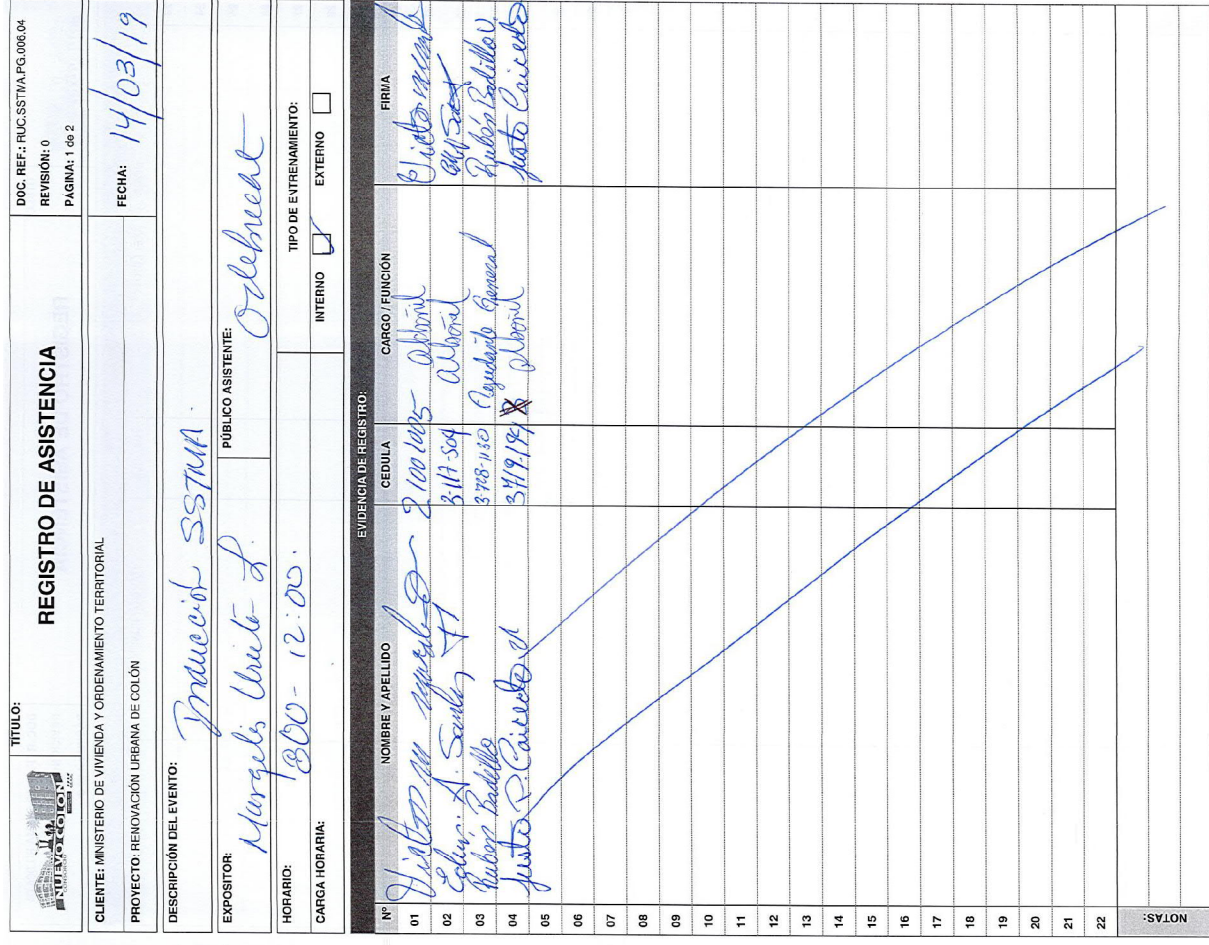 NUEVO COLON
CONSORCIO
TÍTULO:
REGISTRO DE ASISTENCIA
DOC. REF.: RUC.SSTMA.PG.006.04
REVISIÓN: 0
PAGINA: 1 de 2
CLIENTE: MINISTERIO DE VIVIENDA Y ORDENAMIENTO TERRITORIAL
PROYECTO: RENOVACIÓN URBANA DE COLÓN
FECHA: 14/03/19
DESCRIPCIÓN DEL EVENTO: Inducción SSTMA
EXPOSITOR:
PÚBLICO ASISTENTE: Odebrecht
HORARIO: 800 - 12:00.
CARGA HORARIA:
TIPO DE ENTRENAMIENTO:
INTERNO EXTERNO
EVIDENCIA DE REGISTRO:
Nº NOMBRE Y APELLIDO CEDULA CARGO / FUNCIÓN FIRMA
01 Victor 2 1001005 albañil Victor
02 A. 3-117-504 albañil
03 Ruben Badillo 3-728-1130 Ayudante General Rubén Badillo
04 Justo P. Caicedo 3719-194 albañil Justo Caicedo
05
06
07
08
09
10
11
12
13
14
15
16
17
18
19
20
21
22
NOTAS: